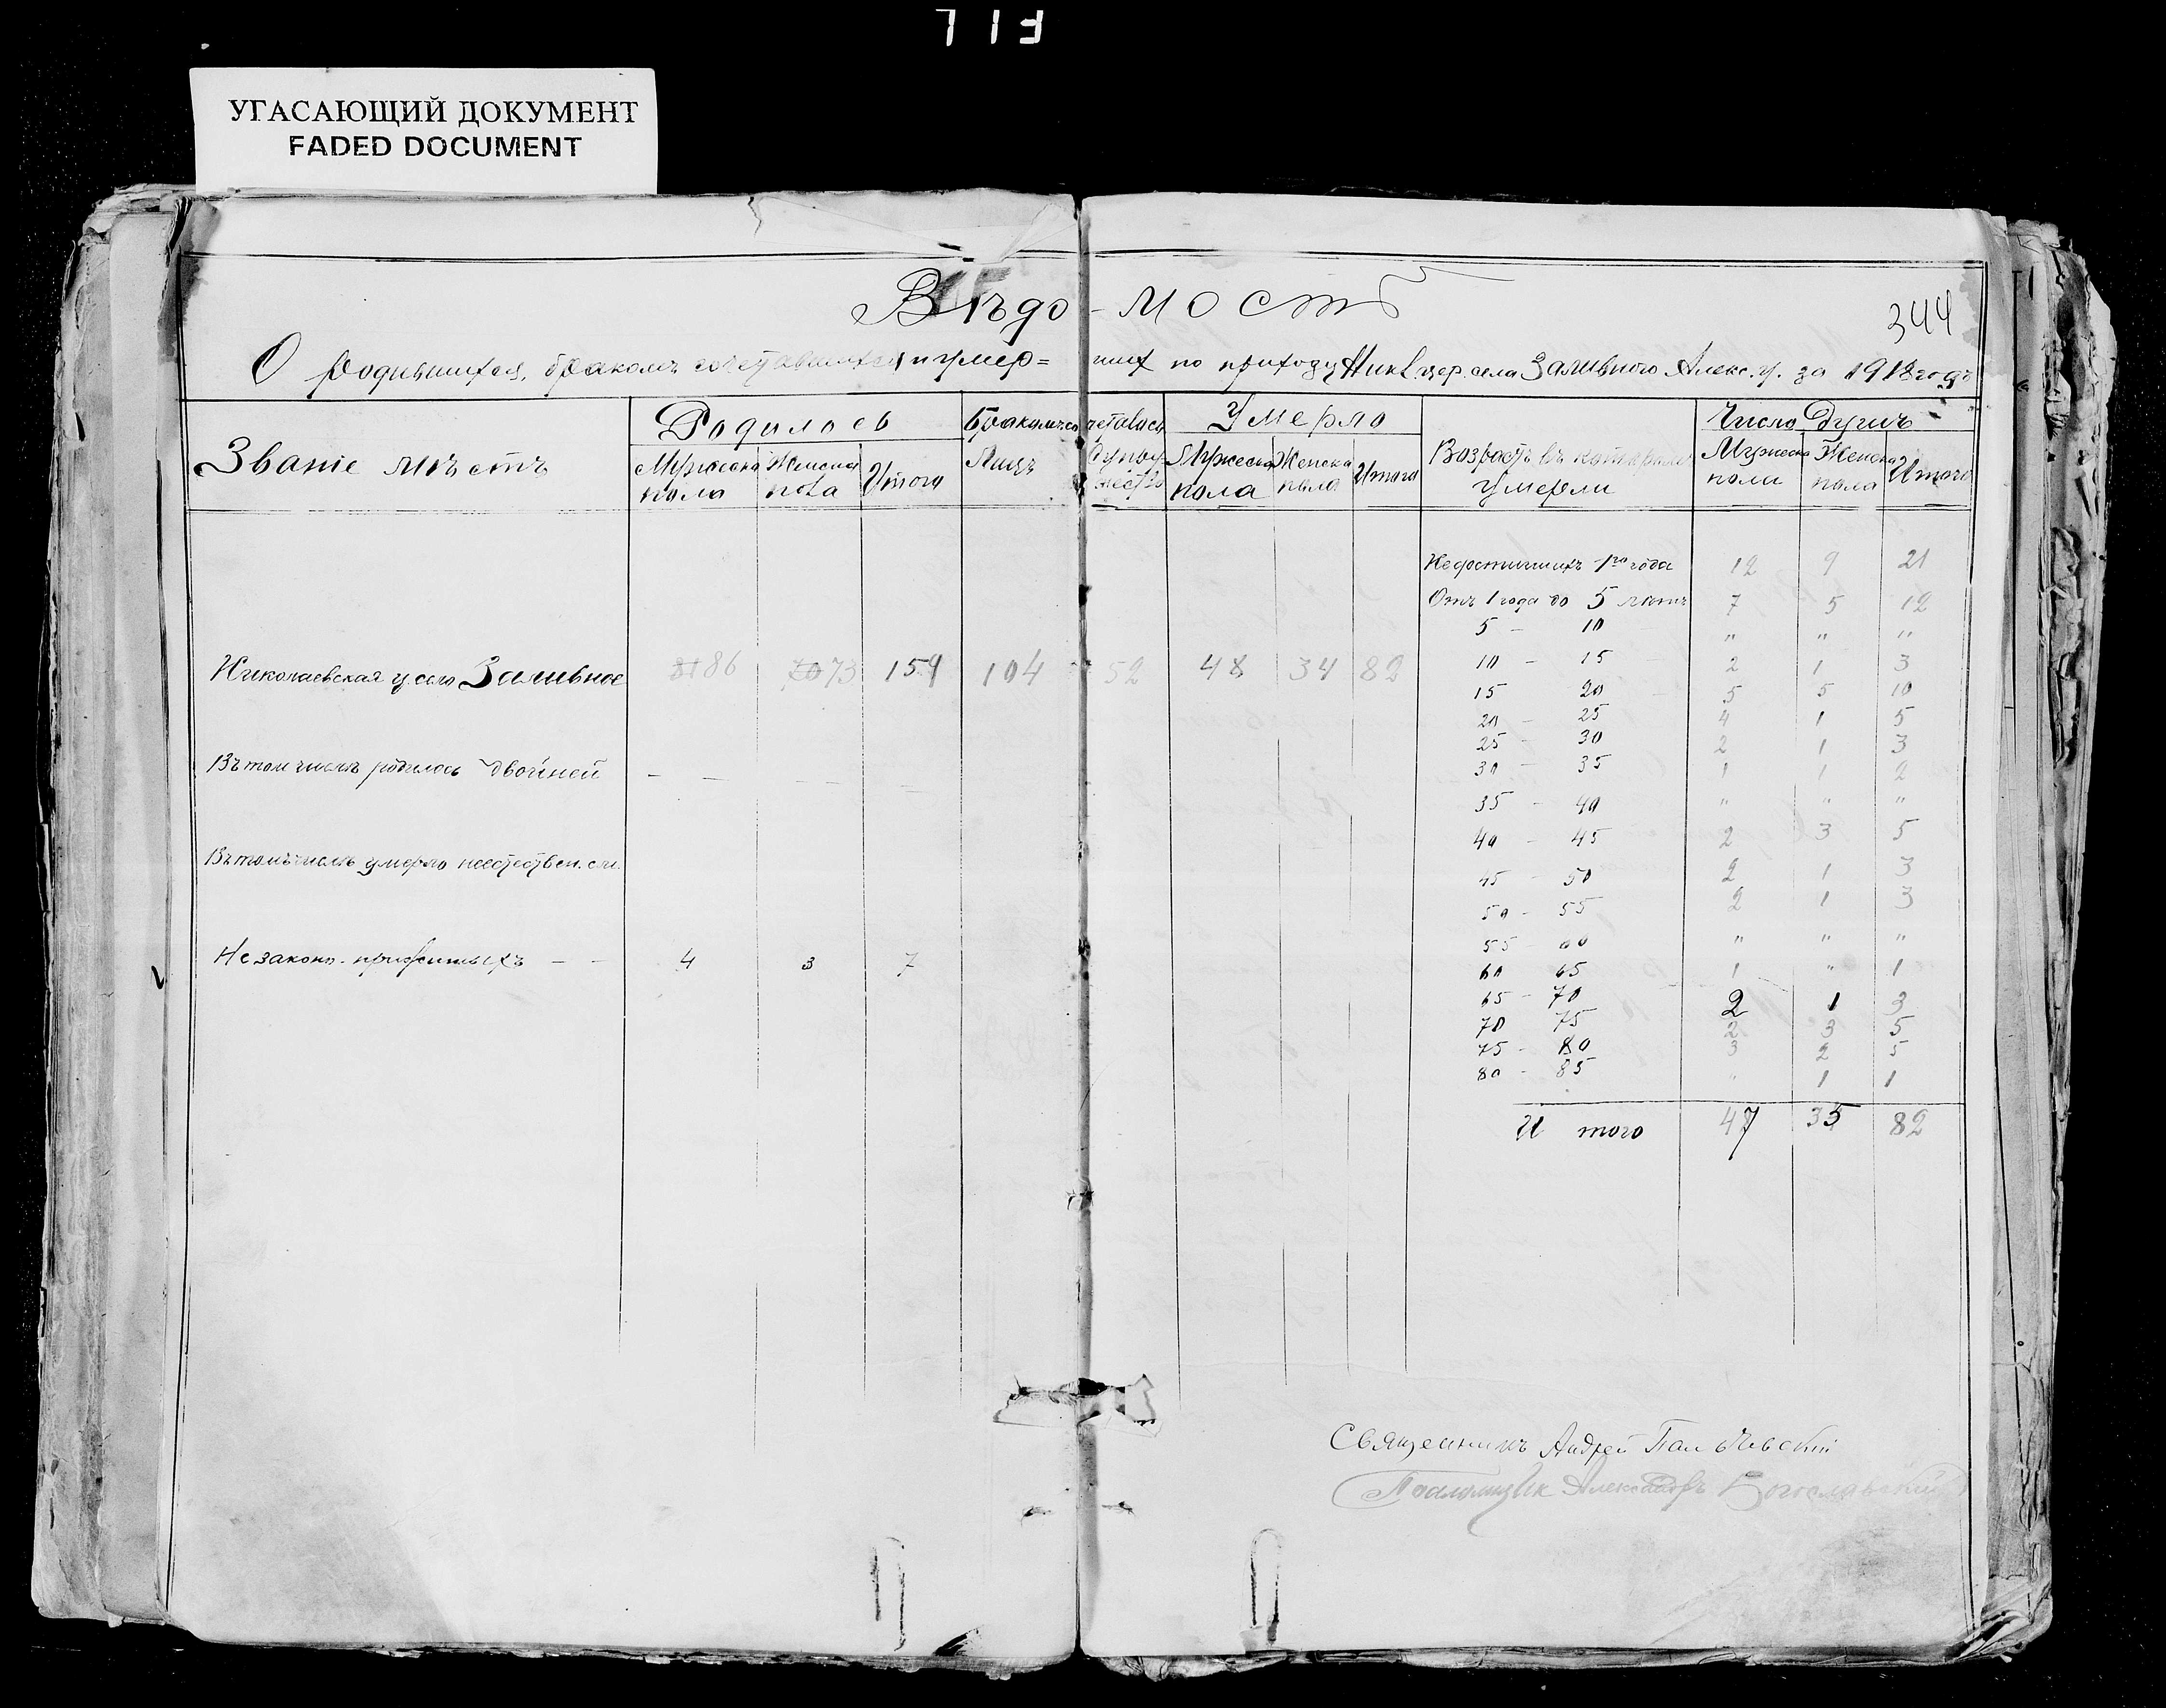 713
УГАСАЮЩИЙ ДОКУМЕНТ
FADED DOCUMENT
Вѣдо-мость
344
О родившихся, бракомъ сочетавшихся и умер= ших по приходу Ник. цер. села Заливного Алекс. у. за 1918 годъ
Званіе мѣстъ
Родилось
Мужеска пола
Женска пола
Итого
Бракомъ сочеталось
Лицъ
Супружествъ
Умерло
Мужеска пола
Женска пола
Итого
Возрастъ въ котором умерли
Число Душъ
Мужеска пола
Женска пола
Итого
Недостигшихъ 1го года 12 9 21
Отъ 1 года до 5 лѣтъ 7 5 12
5 - 10 " " "
Николаевская ц. село Заливное 86 73 159 104 52 48 34 82
10 - 15 2 1 3
15 20 5 5 10
20 - 25 4 1 5
25 - 30 2 1 3
30 - 35 1 1 2
Въ том числѣ родилось двойней - - - -
35 - 40 " " "
40 - 45 2 3 5
Въ томъ числѣ умерло неестествен. см.
45 - 50 2 1 3
50 - 55 2 1 3
55 60 " " "
Незаконо-прижитыхъ - - 4 3 7
60 65 1 " 1
65 - 70 2 1 3
70 75 2 3 5
75 - 80 3 2 5
80 - 85 " 1 1
Итого 47 35 82
Священникъ Андрей
Псаломщик Александръ Богославский